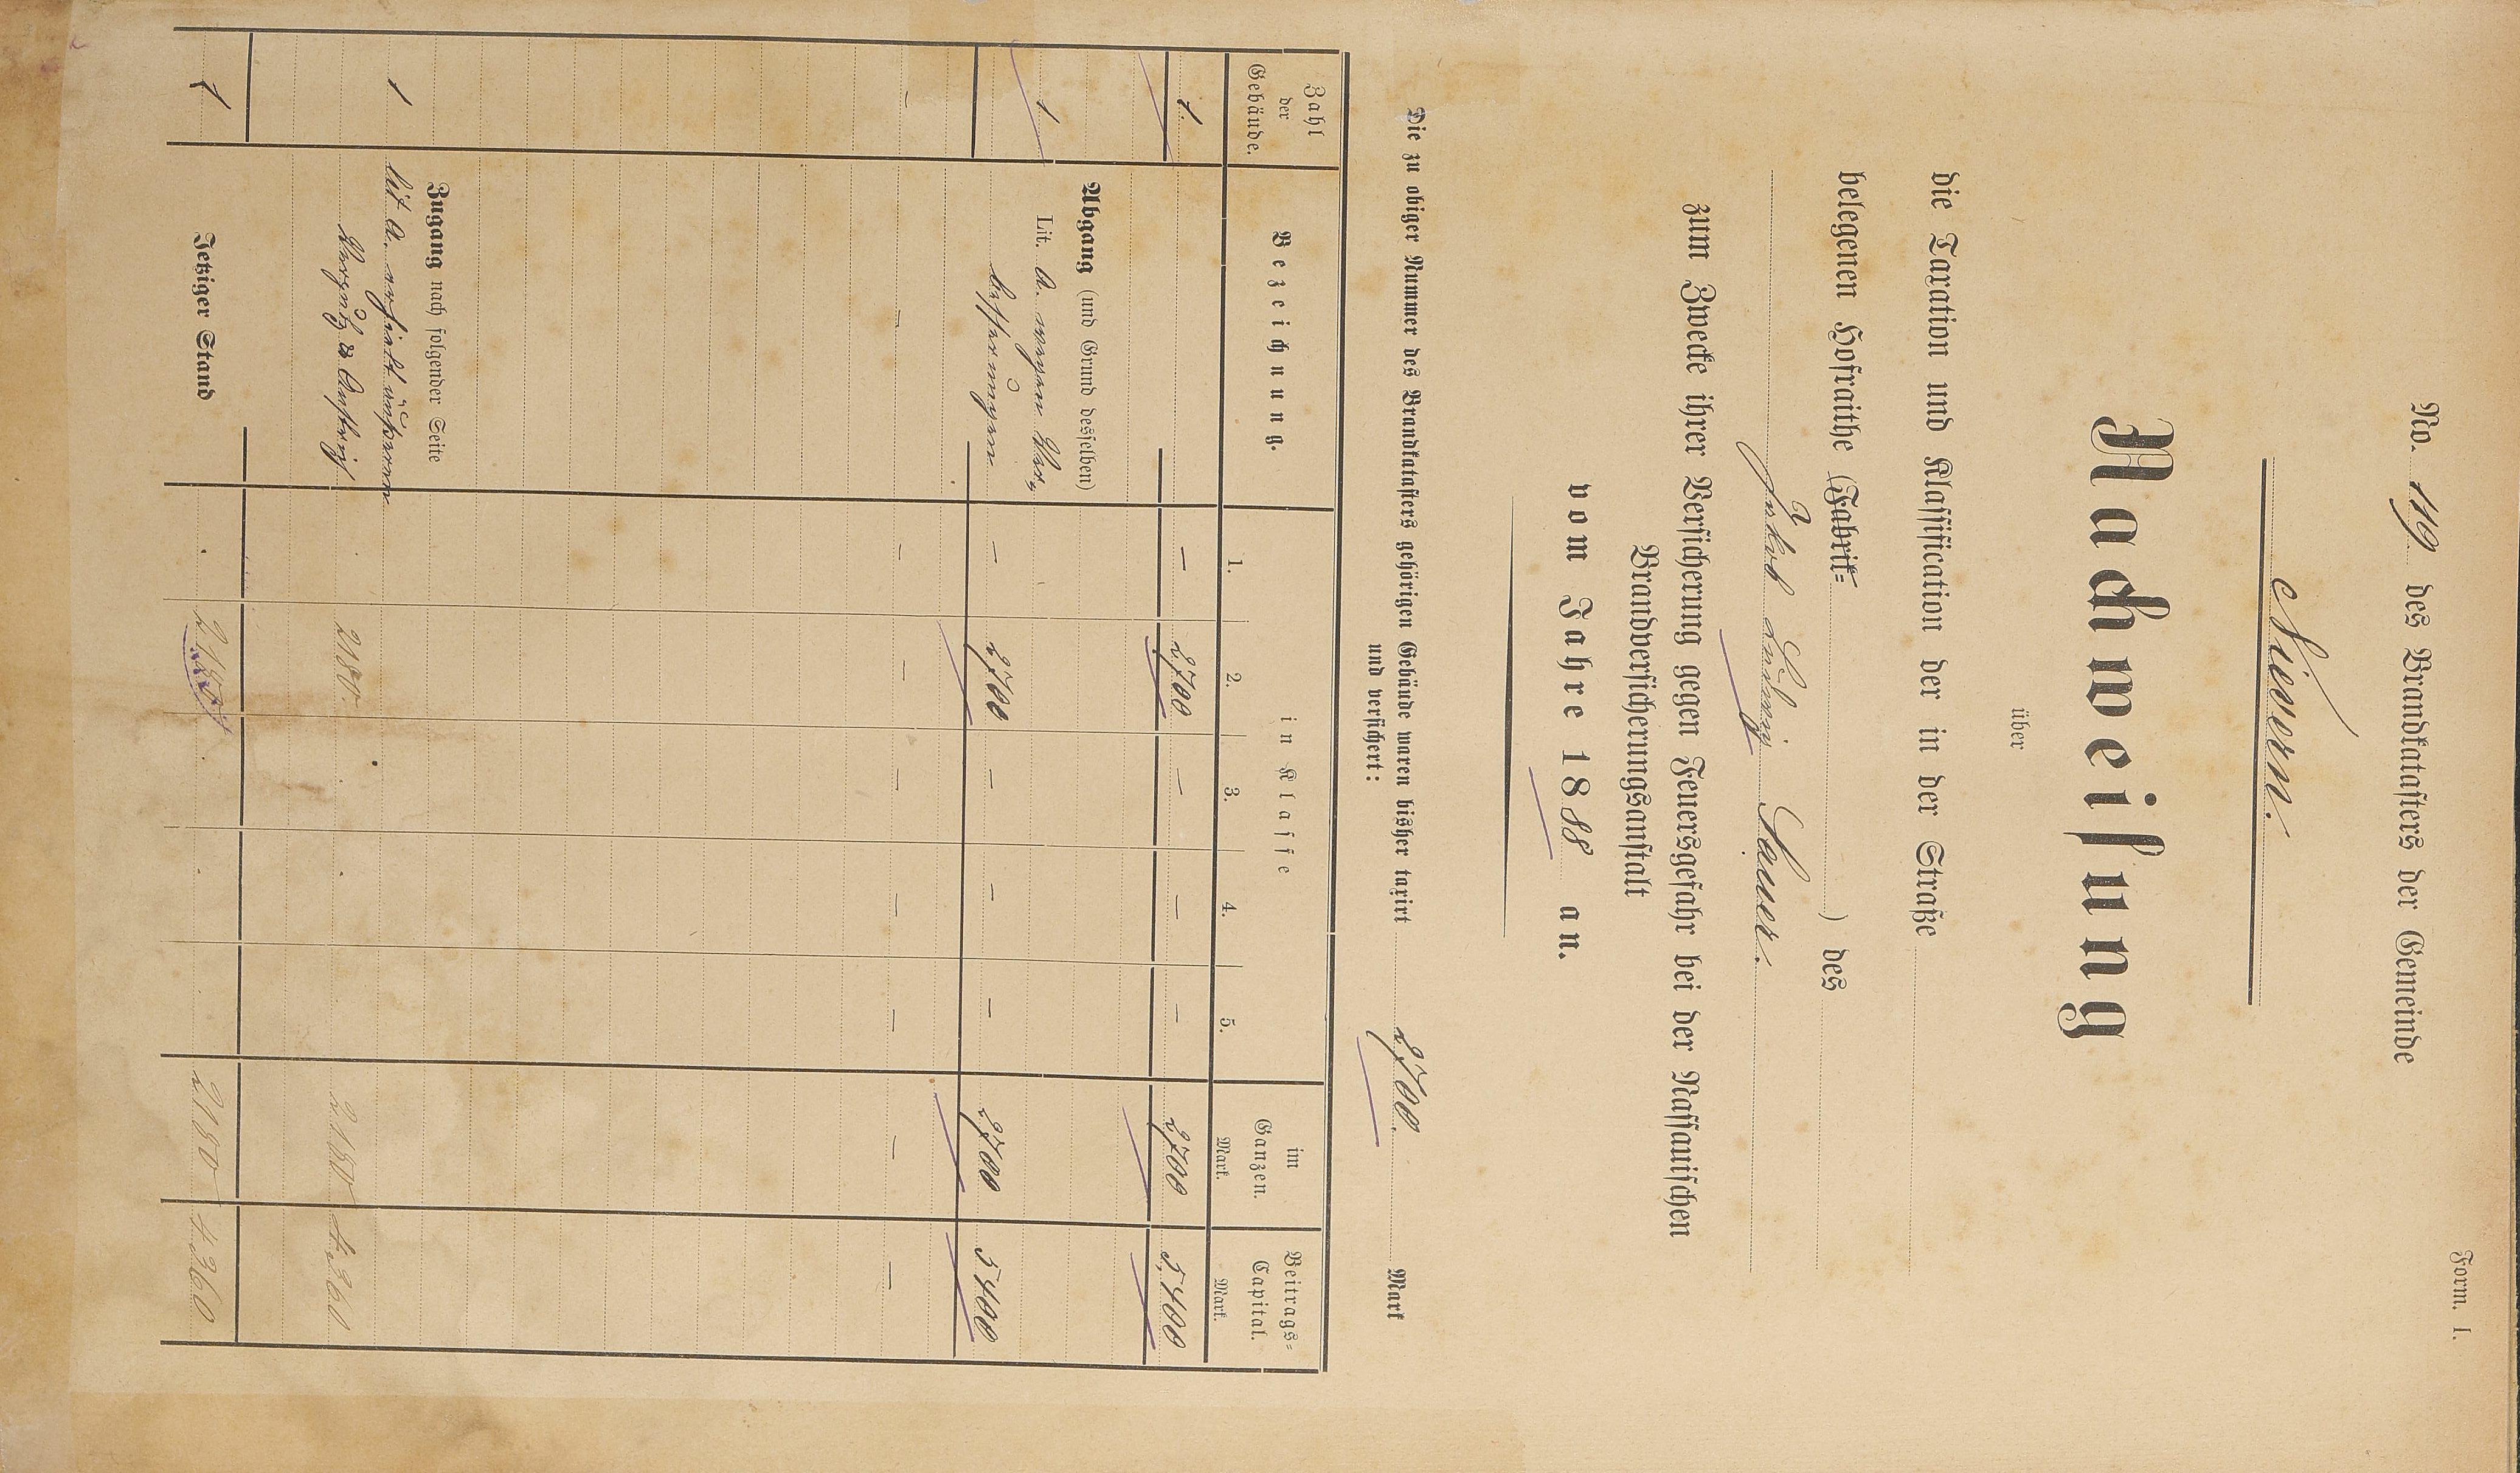 Form. I.
No. 119 des Brandkatasters der Gemeinde
Nievern.
Nachweisung
über
die Taxation und Klassification der in der Straße
belegenen Hofraithe (Fabrik= ) des
Jakob Ludwig Sauer.
zum Zwecke ihrer Versicherung gegen Feuersgefahr bei der Nassauischen
Brandversicherungsanstalt
vom Jahre 1888 an.
Die zu obiger Nummer des Brandkatasters gehörigen Gebäude waren bisher taxirt 2700. Mark
und versichert:
Zahl der Gebäude. Bezeichnung. in Klasse im Ganzen. Beitrags= Capital.
1. 2. 3. 4. 5. Mark. Mark.
1. — 2700 — — — 2700 5400
Abgang (und Grund desselben)
1 Lit. A. wegen Ver=
besserungen — 2700 — — — 2700 5400
— — — — — — — — —
Zugang nach folgender Seite
1 Lit A. erhielt äußeren
Verputz & Anstrich 2180. 2180 4360
1 Jetziger Stand 2180 2180 4360